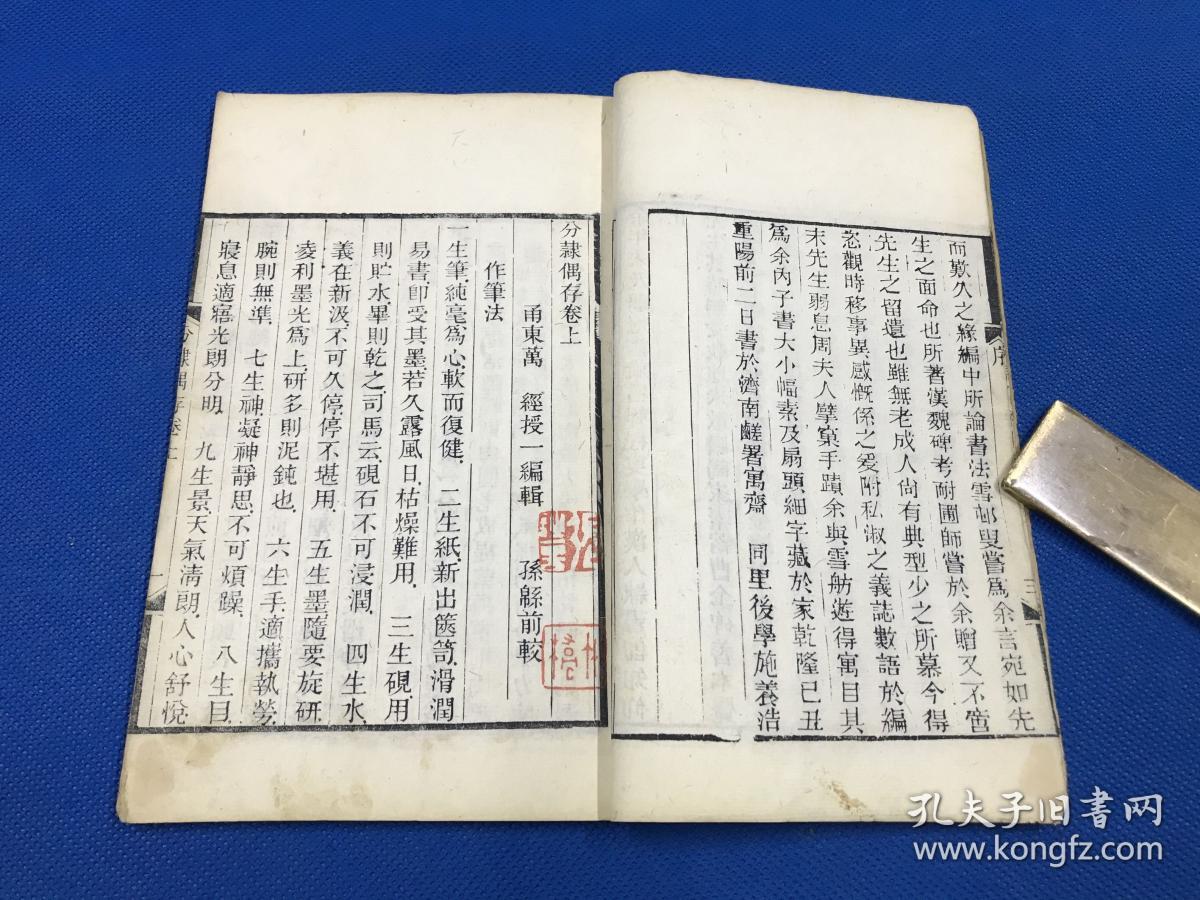 而歎久之緣編中所論書法雪邨叟嘗爲余言宛如先
生之面命也所著漢魏碑考耐圃師嘗於余贈又不啻
先生之留遺也雖無老成人尙有典型少之所慕今得
恣觀時移事異感慨係之爰附私淑之義誌數語於編
末先生弱息周夫人擘窠手蹟余與雪舫遊得寓目其
爲余內子書大小幅素及扇頭細字藏於家乾隆己丑
重陽前二日書於濟南鹺署寓齋 同里後學施義浩
序
三
分隸偶存卷上
甬東萬 經授一編輯 孫緜前較
作筆法
一生筆純毫爲心軟而復健 二生紙新出篋笥滑潤
易書卽受其墨若久露風日枯燥難用 三生硯用
則貯水畢則乾之司馬云硯石不可浸潤 四生水
義在新汲不可久停停不堪用 五生墨隨要旋研
凌利墨光爲上研多則泥鈍也 六生手適攜執勞
腕則無準 七生神凝神靜思不可煩躁 八生目
寢息適寤光朗分明 九生景天氣淸朗人心舒悅
分隸偶存卷上
一
孔夫子旧书网
www.kongfz.com